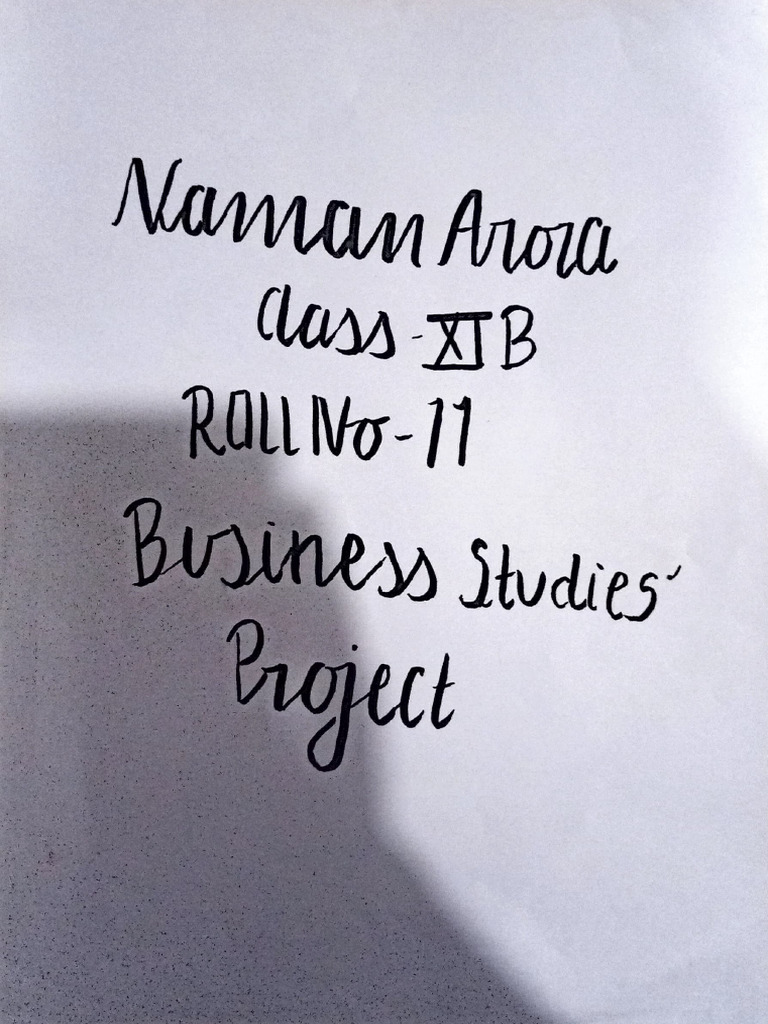 Naman Arora
Class - XI B
ROLL No - 11
Business Studies'
Project